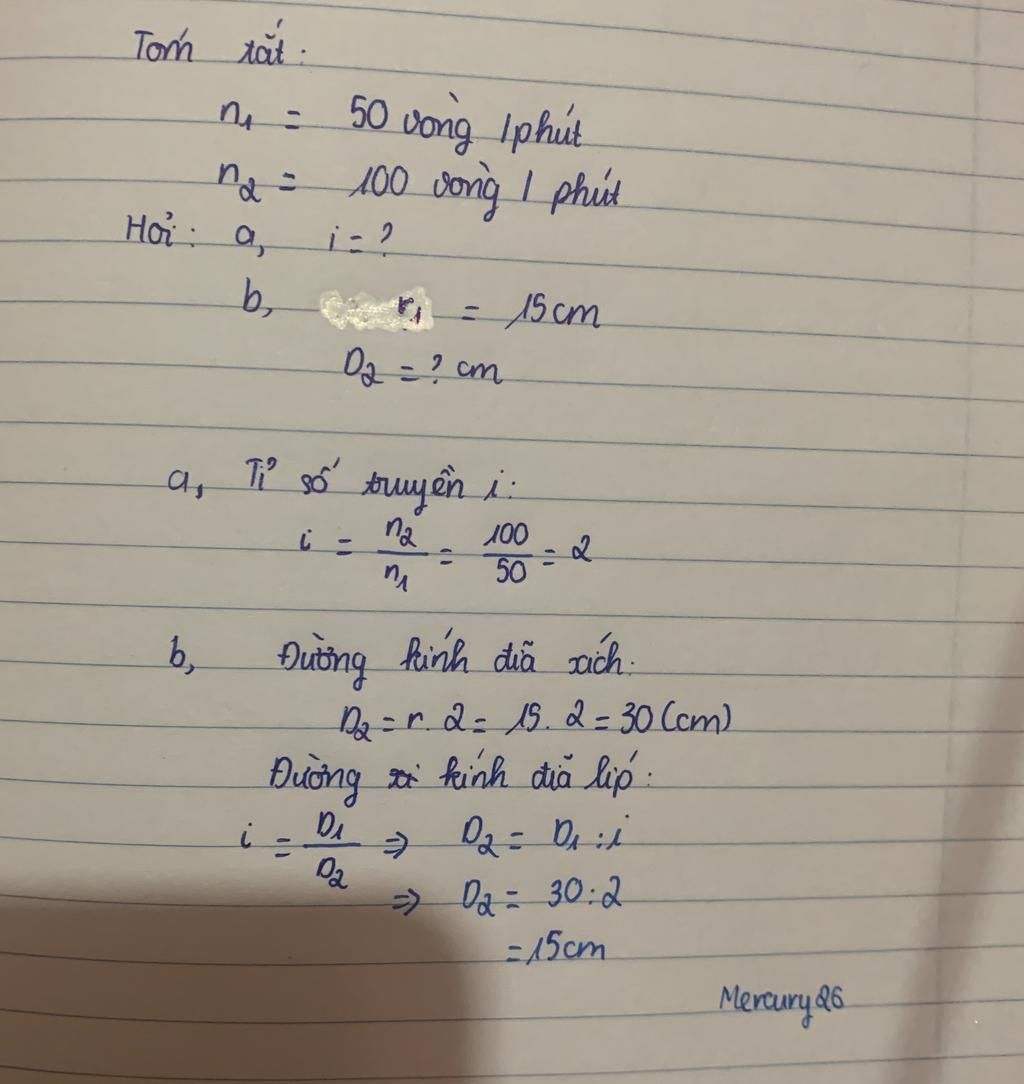 Tóm tắt:
n₁ = 50 vòng / phút
n₂ = 100 vòng / phút
Hỏi: a, i = ?
b, r₁ = 15cm
D₂ = ? cm
a, Tỉ số truyền i:
i = n₂/n₁ = 100/50 = 2
b, Đường kính đĩa xích.
D₂ = r. 2 = 15. 2 = 30 (cm)
Đường kính đĩa líp:
i = D₁/D₂ ⇒ D₂ = D₁ : i
⇒ D₂ = 30 : 2
= 15cm
Mercury26